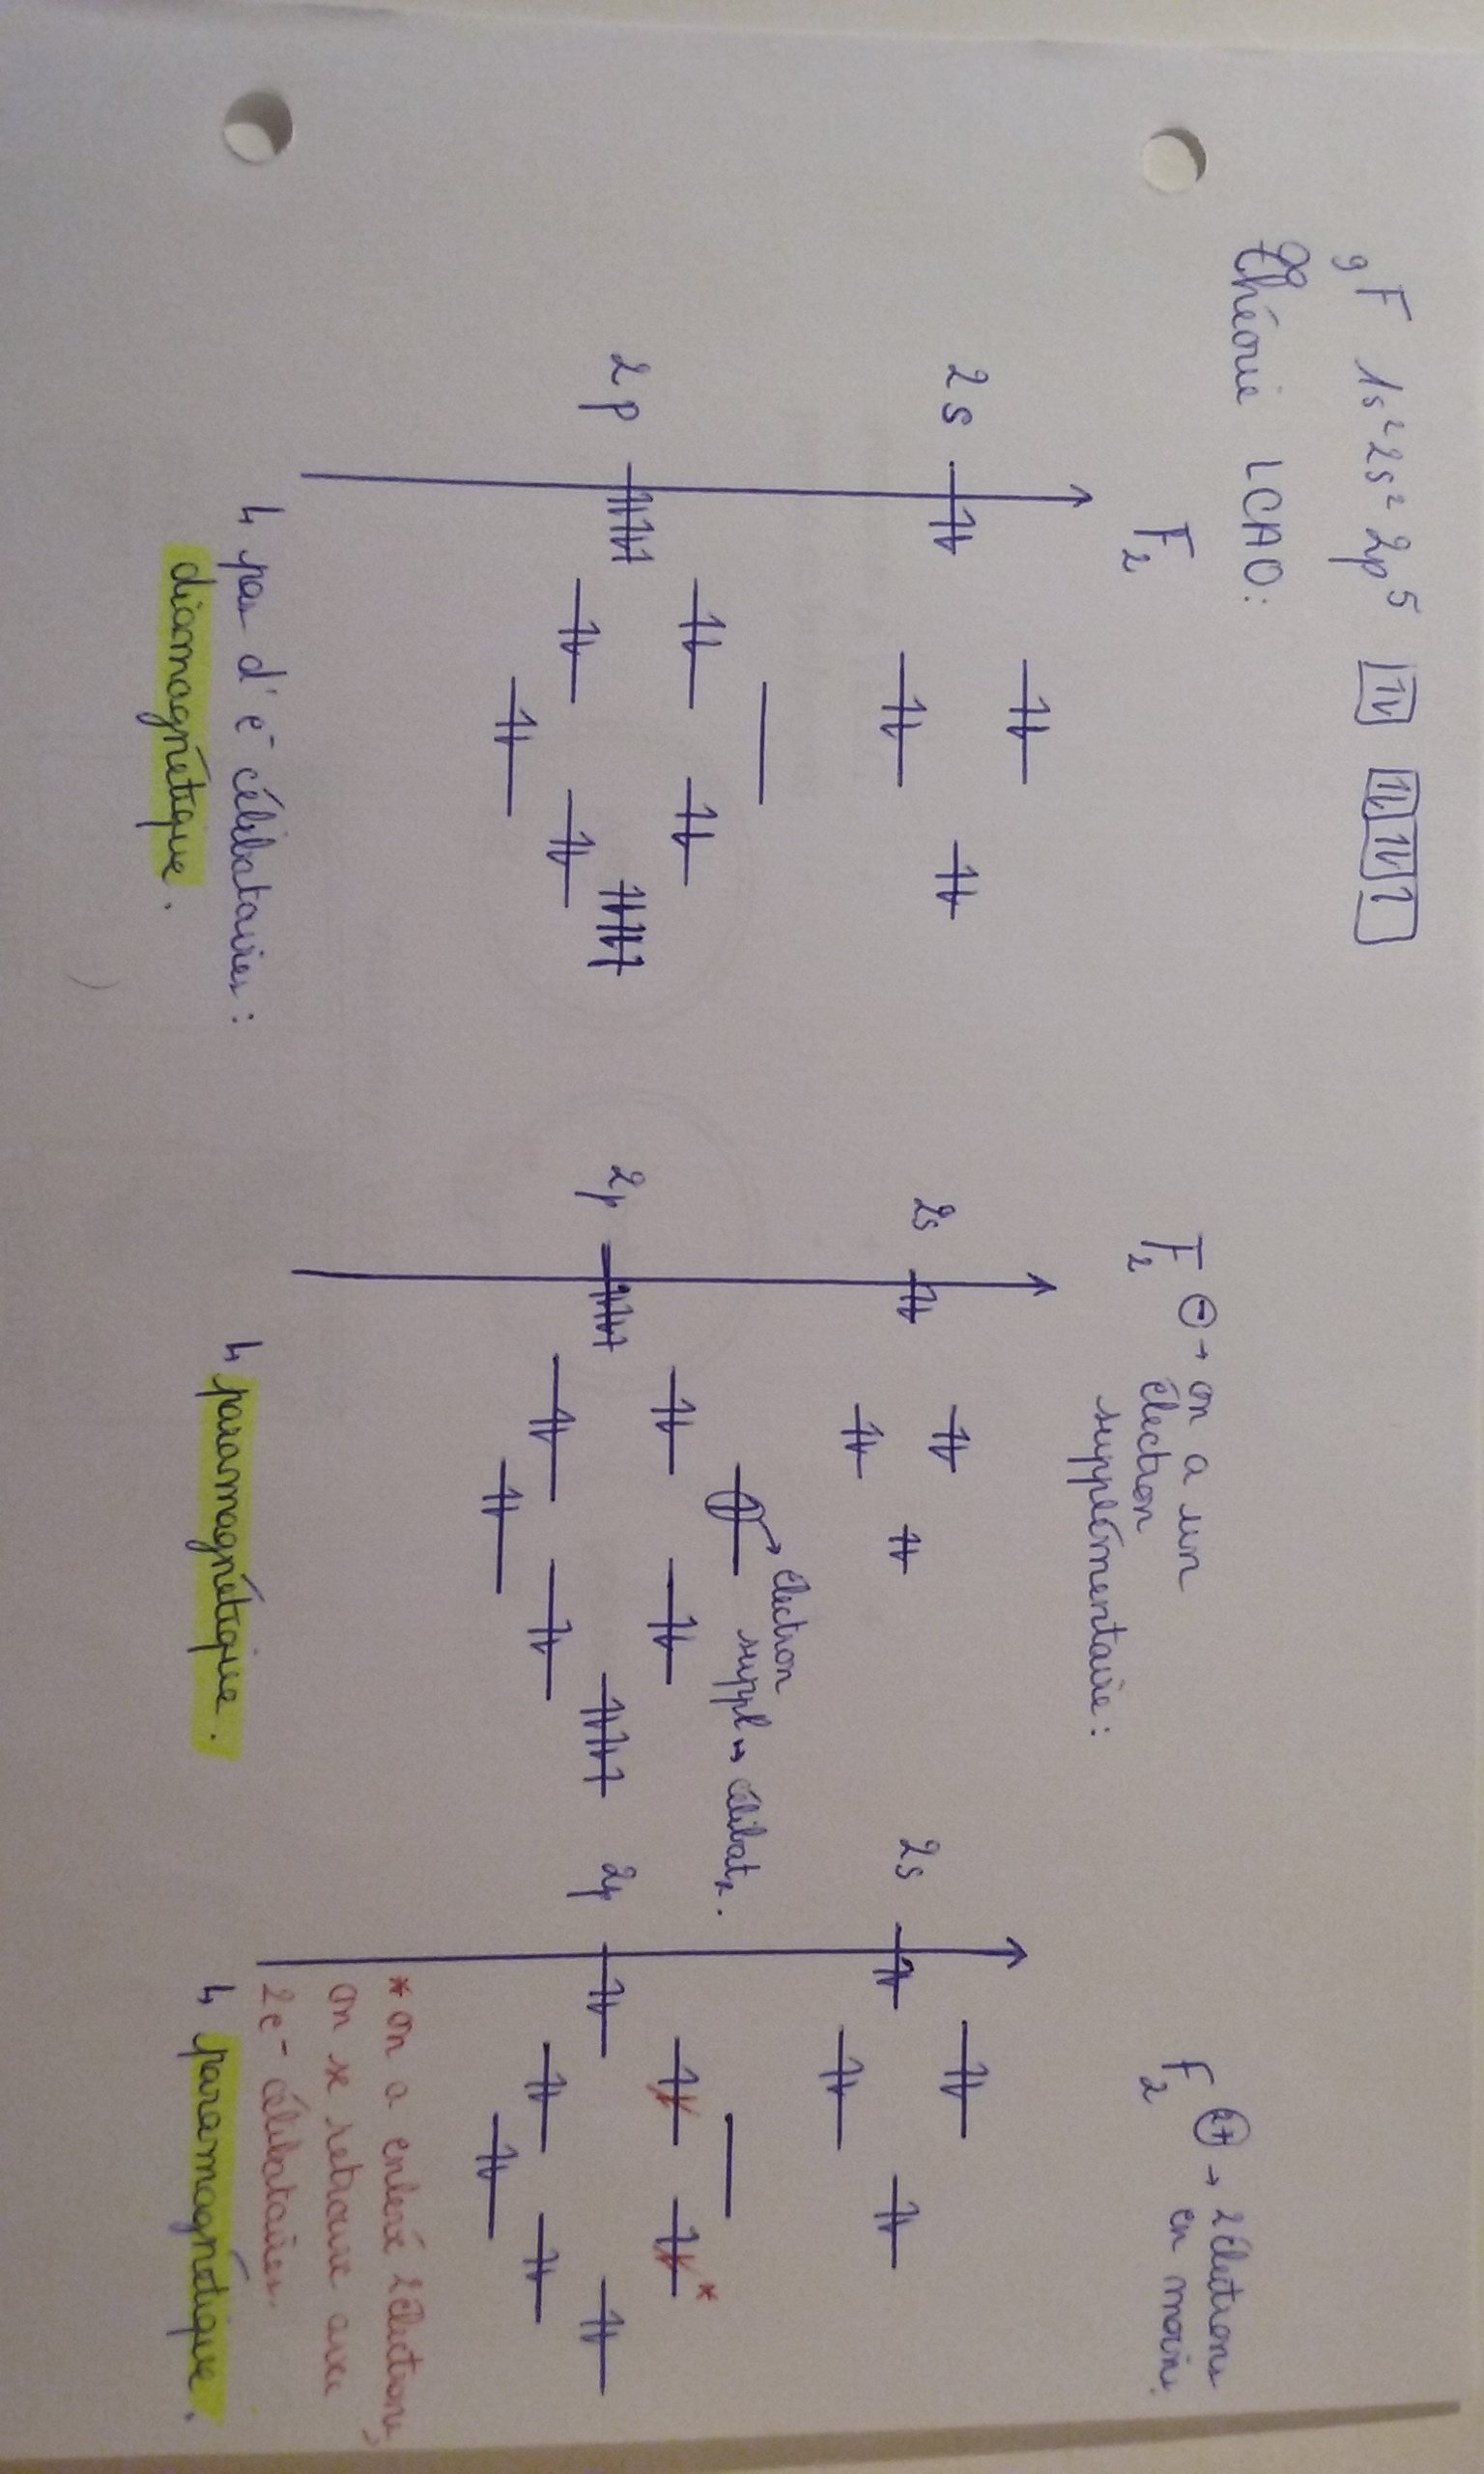 ₉F 1s² 2s² 2p⁵ ⇅ ⇅ ⇅ ↑
Théorie LCAO:
F₂
2s
2p
↳ pas d'e⁻ célibataires :
diamagnétique.
F₂⊖ → on a un
électron
supplémentaire :
2s
électron
suppl → célibat.
2p
↳ paramagnétique.
F₂²⁺ → 2 électrons
en moins.
2s
*
2p
* on a enlevé 2 électrons,
on se retrouve avec
2e⁻ célibataires.
↳ paramagnétique.